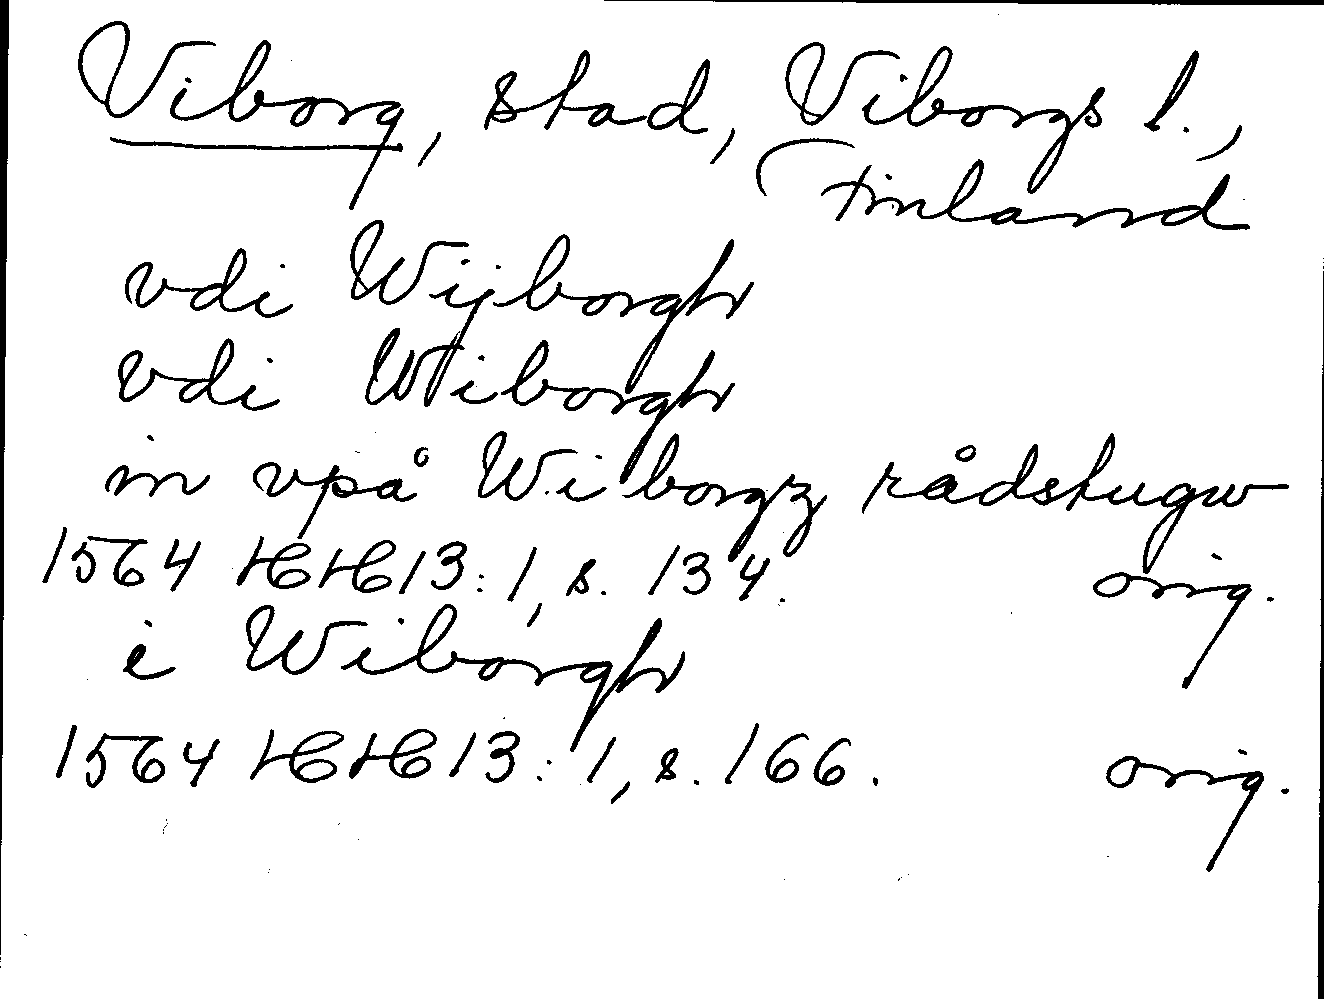 Viborg, stad, Viborgs l.,
Finland
vdi Wijborgh
vdi Wiborgh
in vpå Wiborgz rådstugw
1564 HH 13:1, s. 134. orig.
i Wiborgh
1564 HH 13:1, s. 166. orig.